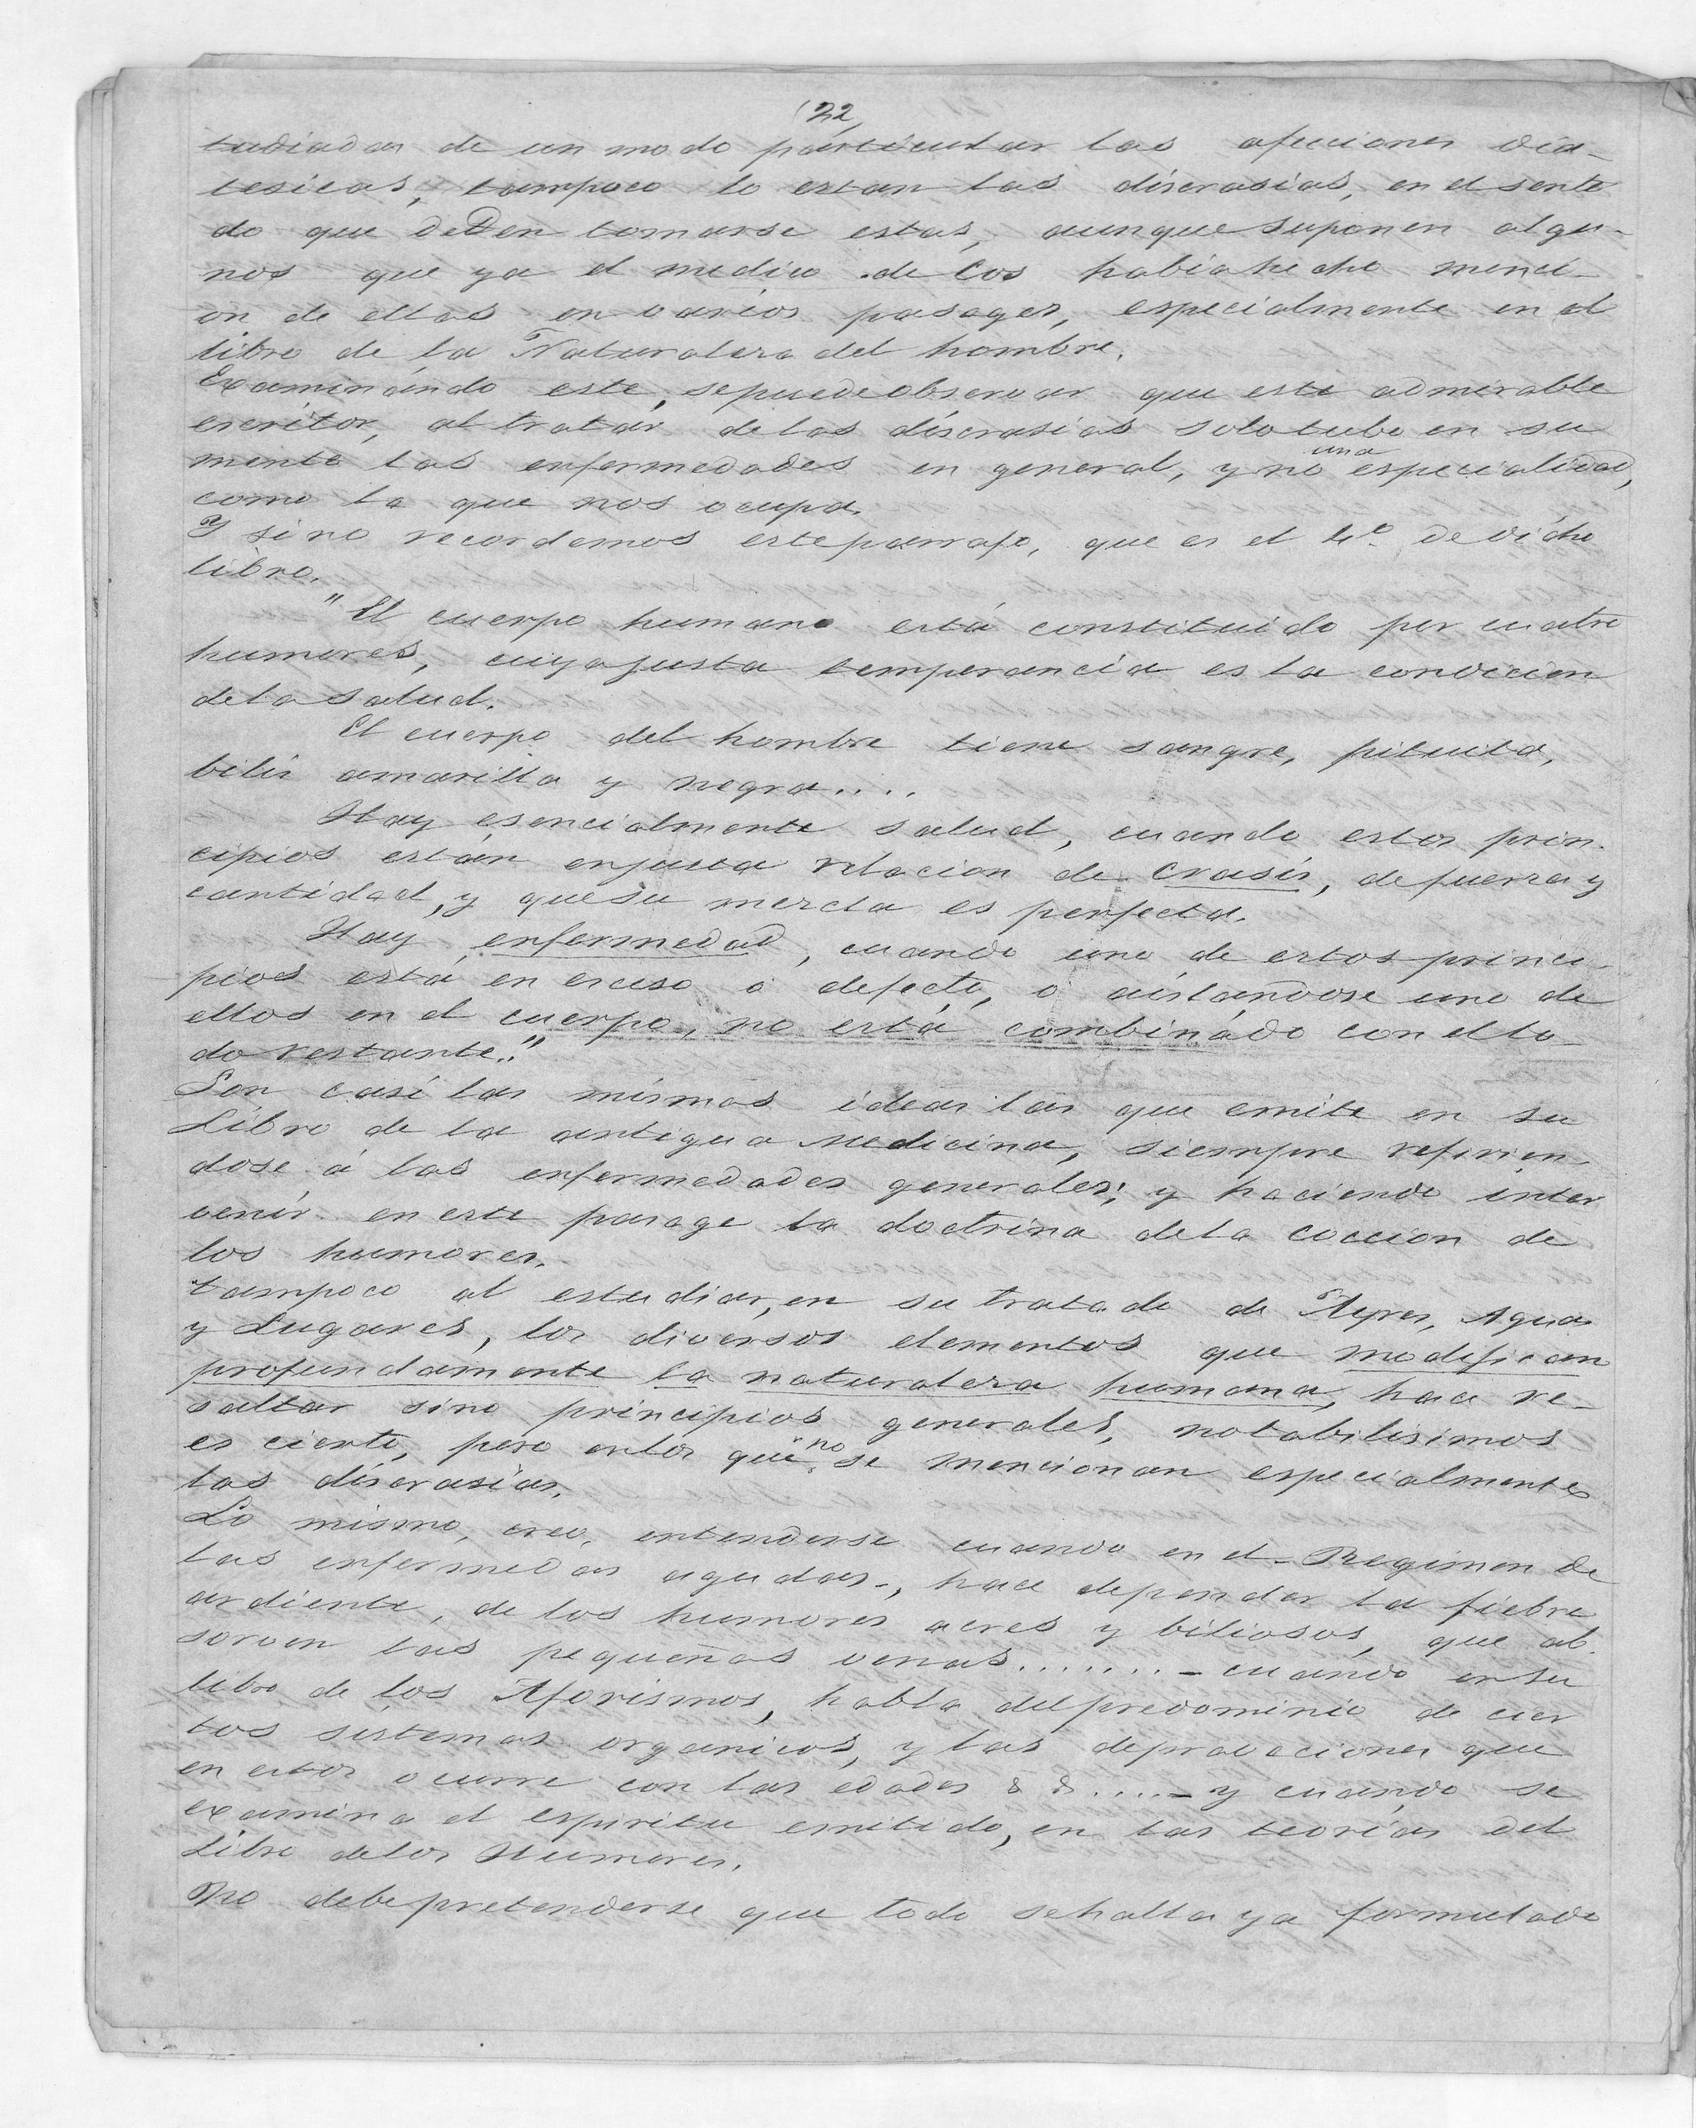 22
tudiadas de un modo particular las afecciones dia-
tesicas, tampoco lo estan las discrasias, en el senti
do que deben tomarse estas, aunque suponen algu-
nos que ya el medico de Cos habia hecho menci-
on de ellas en varios pasages, especialmente en el
libro de la Naturaleza del hombre.
Examinándo este, se puede observar que este admirable
escritor, al tratar de las discrasias solo tubo en su
mente las enfermedades en general, y no una especialidad,
como la que nos ocupa.
Y sino recordemos este parrafo, que es el 4º de dicho
libro.
"El cuerpo humano está constituido por cuatro
humores, cuya justa temperancia es la condicion
de la salud.
El cuerpo del hombre tiene sangre, pituita,
bilis amarilla y negra....
Hay esencialmente salud, cuando estos prin-
cipios están en justa relacion de crasis, de fuerza y
cantidad, y que su mezcla es perfecta.
Hay enfermedad, cuando uno de estos princi-
pios está en exceso ó defecto, ó aislandose uno de
ellos en el cuerpo, no está combinádo con el to-
do restante."
Son casi las mismas ideas las que emite en su
Libro de la antigua Medicina, siempre refirien-
dose á las enfermedades generales; y haciendo inter
venir en este pasage la doctrina de la coccion de
los humores.
Tampoco al estudiar, en su tratado de Ayres, Aguas
y Lugares, los diversos elementos que modifican
profundamente la naturaleza humana, hace re-
saltar sino principios generales, notabilisimos
es cierto, pero en los que no se mencionan especialmente
las discrasias.
Lo mismo, creo, entenderse cuando en el Regimen de
las enfermedas agudas, hace depender la fiebre
ardiente, de los humores acres y biliosos, que ab
sorven las pequeñas venas....... - cuándo en su
libro de los Aforismos, habla del predominio de cier
tos sistemas organicos, y las depravaciones que
en estos ocurre con las edades & &.... - y cuándo se
examina el espiritu emitido, en las teorias del
Libro de los Humores.
No debe pretenderse que todo se halla ya formulado